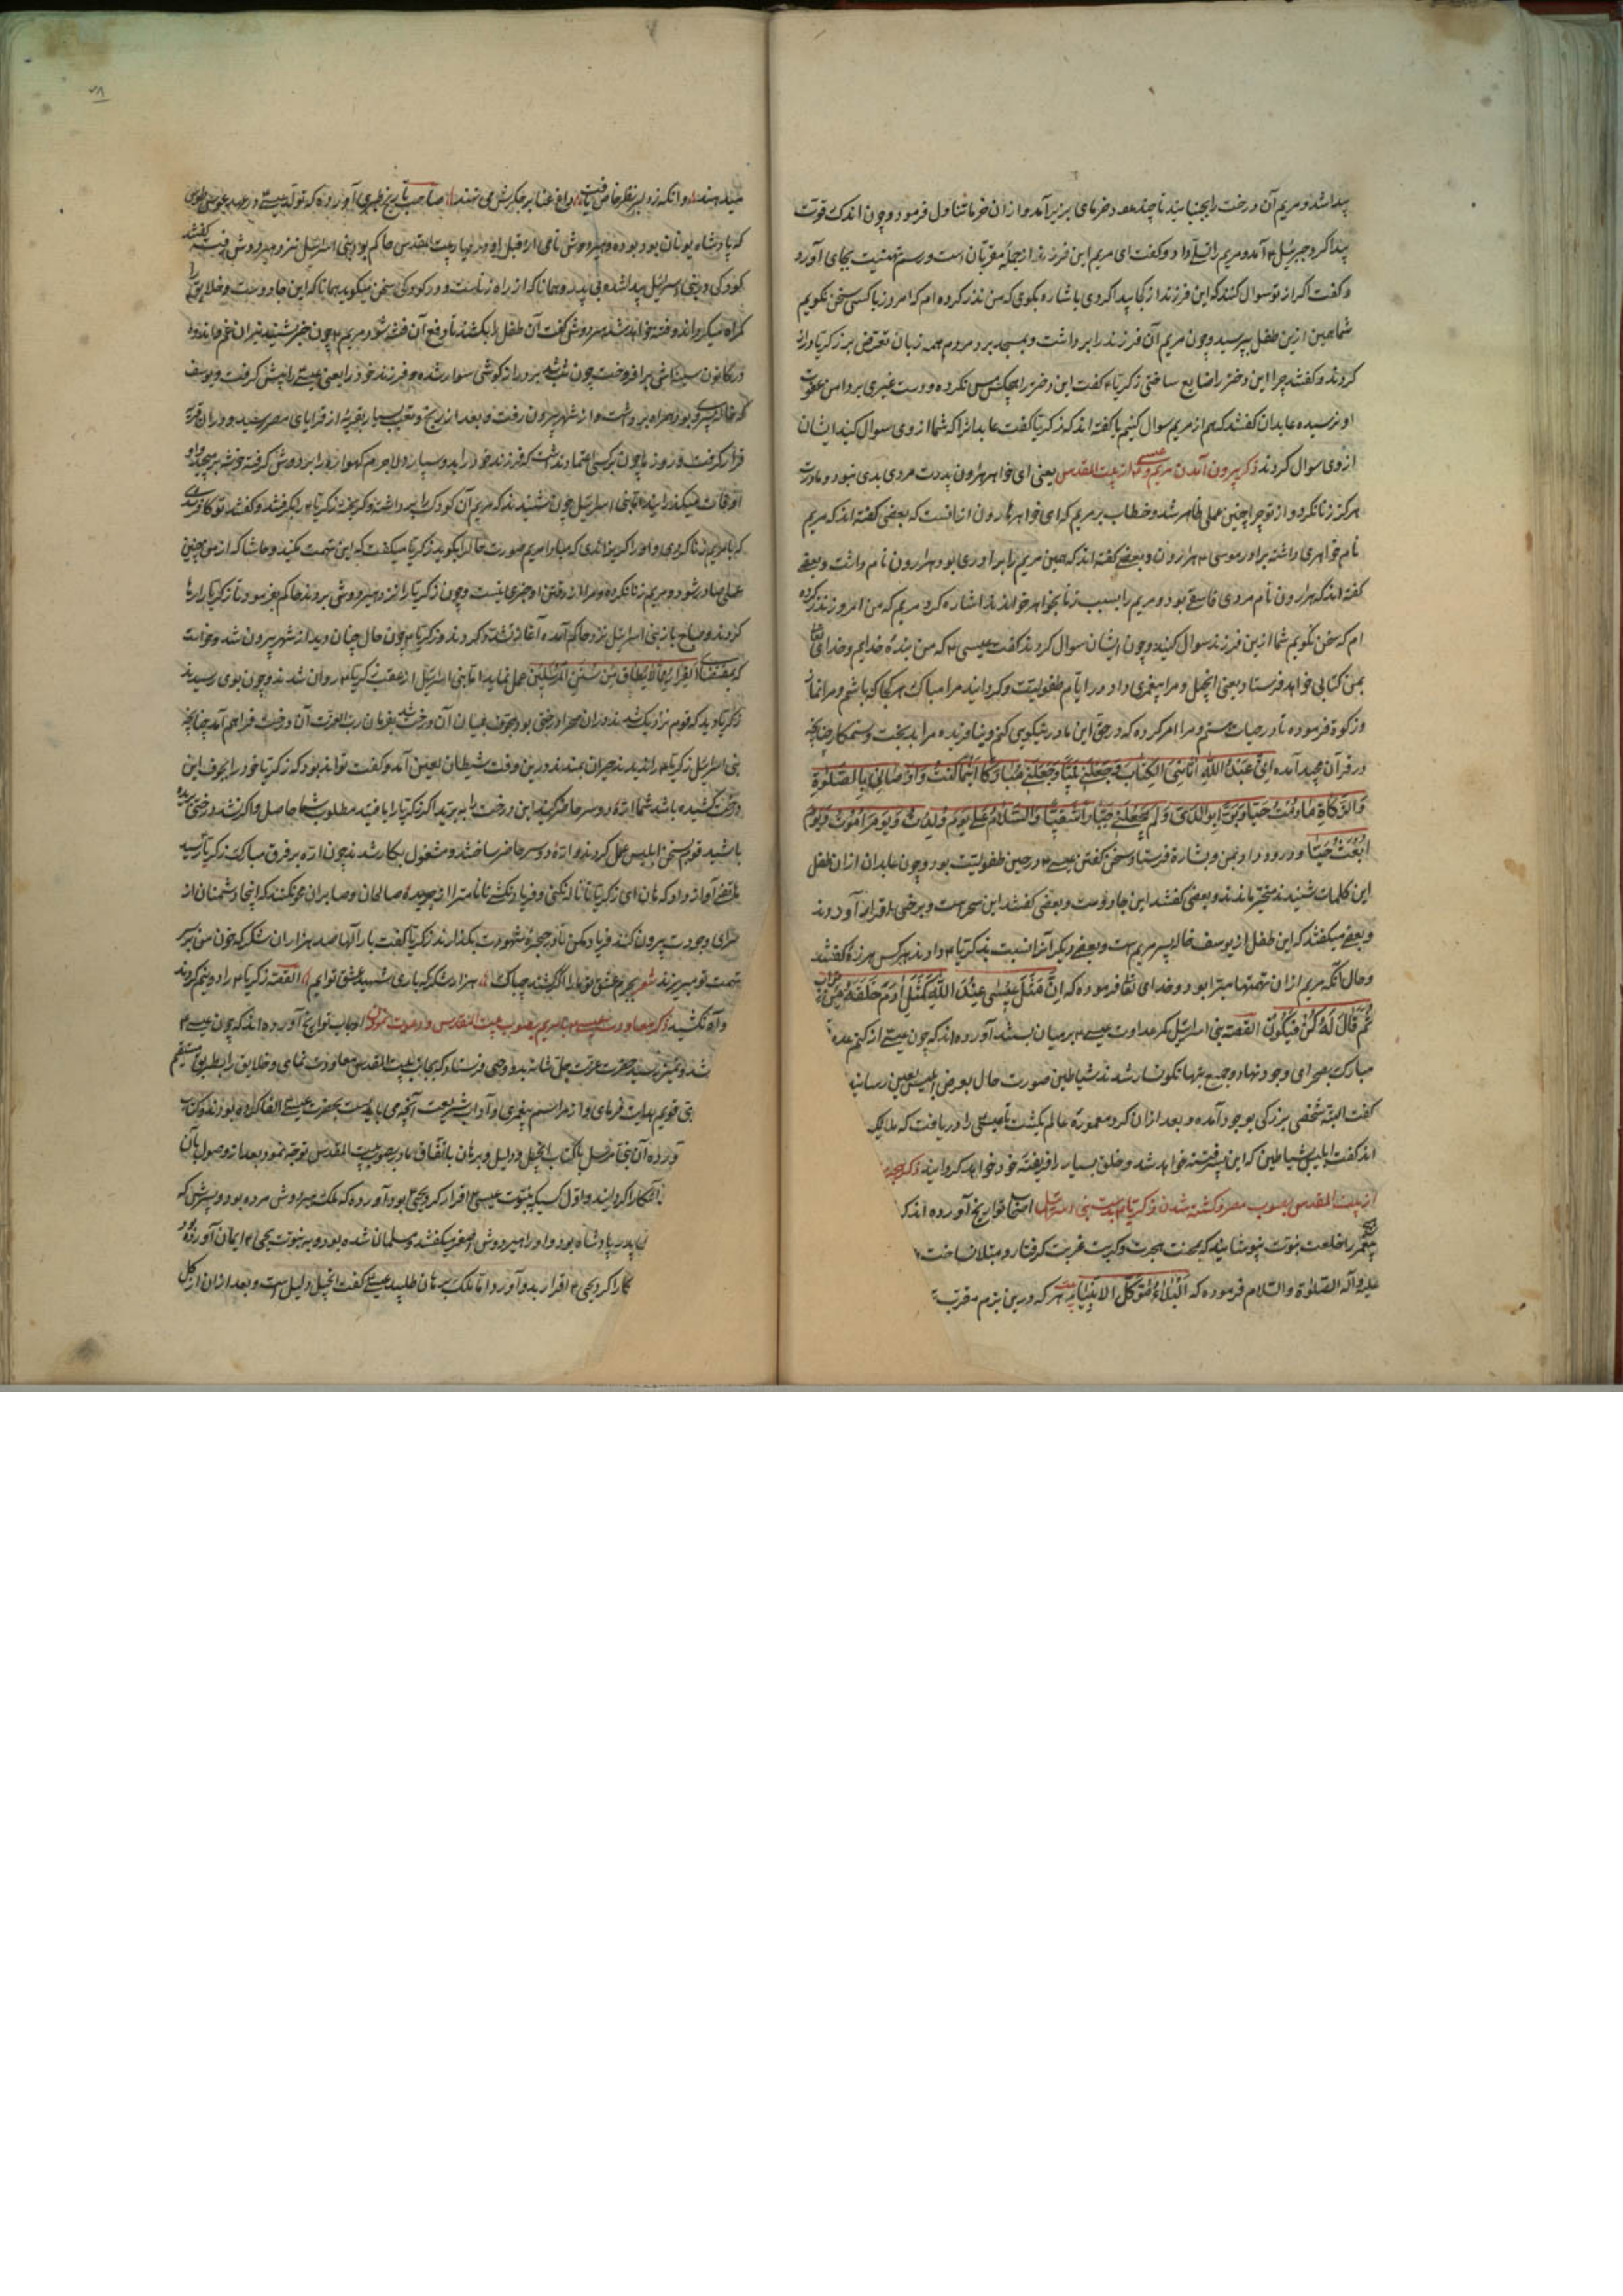 پیدا شد و مریم آن درخت را بجنبانید تا چند عدد خرمای بر زیر آمد و از آن خرما تناول فرمود و چون اندک قوت
پیدا کرد جبرئیل ۴ آمد و مریم را تسلی داد و گفت ای مریم این فرزند از جمله مقربان است و رسم تهنیت بجای آورد
و گفت اگر از تو سوال کنند که این فرزند از کجا پیدا کردی باشاره بگوی که من نذر کرده ام که امروز با کسی سخن نگویم
شما همین ازین طفل بپرسید و چون مریم آن فرزند را برداشت و بمسجد برد مردم همه زبان تعرض بر زکریا دراز
کردند و گفتند چرا این دختر را ضایع ساختی زکریا ۴ گفت این دختر را هیچکس مس نکرده و دست غیری بر دامن عفت
او نرسیده عابدان گفتند که هم از مریم سوال کنیم یا گفته اند که زکریا گفت عابدانرا که شما از وی سوال کنید ایشان
از وی سوال کردند ذکر بیرون آمدن مریم و عیسی ۴ از بیت المقدس یعنی ای خواهر هرون پدرت مردی بدی نبود و مادرت
هرگز زنا نکرد و از تو چرا چنین عملی ظاهر شد و خطاب بر مریم که ای خواهر هارون از آنست که بعضی گفته اند که مریم
نام خواهری داشته برادر موسی ۴ هرون و بعضے گفته اند که همین مریم را برادری بود هارون نام داشت و بعضے
گفته اند که هرون نام مردی فاسقے بود و مریم را بسبب زنا بخواهر خواندند اشاره کرد مریم که من امروز نذر کرده
ام که سخن نگویم شما ازین فرزند سوال کنید و چون ایشان سوال کردند گفت عیسی ۴ که من بنده خدایم و خدای تعالی
بمن کتابی خواهد فرستاد یعنی انجیل و مرا پیغمبری داد و در ایام طفولیت و گردانید مرا مبارک هر کجا که باشم و مرا نماز
و زکوة فرموده تا در حیات هستم و مرا امر کرده که در حق این مادر نیکویی کنم و نیافریده مرا بدبخت و ستمکار چنانچه
در قرآن مجید آمده اِنّی عَبدُ اللهِ آتانِیَ الکِتابَ وَ جَعَلَنی نَبِیّاً وَ جَعَلَنی مُبارَکاً اَینَما کُنتُ وَ اَوصانی بِالصَّلوةِ
وَالزَّکاةِ ما دُمتُ حَیّاً وَ بَرّاً بِوالِدَتی وَ لَم یَجعَلنی جَبّاراً شَقِیّاً وَالسَّلامُ عَلَیَّ یَومَ وُلِدتُ وَ یَومَ اَمُوتُ وَ یَومَ
اُبعَثُ حَیّاً و درود داد بمن و بشارة فرستاد و سخن گفتن عیسے ۴ در حین طفولیت بود و چون عابدان ازان طفل
این کلمات شنیدند متحیر ماندند و بعضی گفتند این جادوست و بعضی گفتند این سحر است و برخی باقرار آوردند
و بعضے میگفتند که این طفل از یوسف خاله پسر مریم است و بعضے دیگر آنرا نسبت بزکریا ۴ دادند هر کس هرزه گفتند
و حال آنکه مریم ازان تهمتها مبرا بود و خدای تعا فرموده که اِنَّ مَثَلَ عیسی عِندَ اللهِ کَمَثَلِ آدَمَ خَلَقَهُ مِن تُراب
ثُمَّ قالَ لَهُ کُن فَیَکُون القصه بنی اسرائیل کمر عداوت عیسے ۴ بر میان بستند آورده اند که چون عیسے از کتم عدم
مبارک بصحرای وجود نهاد و جمیع بتها نگونسار شدند شیاطین صورت حال بعرض ابلیس لعین رسانید
گفت البته شخصی بزرگی بوجود آمده و بعد ازان گرد معموره عالم بگشت تا عیسی را دریافت که ملایک
اند گفت ابلیس شیاطین که این پسر فتنه خواهد شد و خلق بسیار را فریفته خود خواهد گردانید ذکر
از بیت المقدس بصوب مصر و کشته شدن زکریا بدست بنی اسرائیل اصحاب تواریخ آورده اند که
پیغمبر را خلعت نبوت نپوشانید که بمحنت هجرت و کربت غربت گرفتار و مبتلا نساخت
علیه و آله الصلوة والسلام فرموده که اَلبَلاءُ مُوَکَّلُ الاَنبِیاء هر که درین بزم مقرب
که پادشاه یونان بود بوده و هیردوش نامی از قبل او در نهار بیت المقدس حاکم بود بنی اسرائیل نزد هیردوش رفته گفتند
کودکی در بنی اسرائیل پیدا شده بی پدر و همانا که از راه زناست و در کودکی سخن میگوید همانا که این جادوست و خلایق را
گمراه میگرداند و فتنه خواهد شد هیردوش گفت آن طفل را بکشند تا دفع آن فتنه شود مریم ۴ چون خبر شنید نیران غم و اندوه
در کانون سینه اش برافروخت چون شب شد بر دراز گوشی سوار شده و فرزند خود را یعنی عیسے را پیش گرفت و یوسف
که خاله پسر او بود همراه برداشت و از شهر بیرون رفت و بعد از رنج و تعب بسیار بقریه از قرایای مصر رسید و دران قریه
قرار گرفت و روزها چون بر کسی اعتماد نداشت که فرزند خود را بدو سپارد لاجرم گهواره را بر دوش گرفته خوشه میچید و
اوقات میگذرانید اما بنی اسرائیل چون شنیدند که مریم آن کودک را برداشته و گریخته زکریا ۴ را گرفتند و گفتند تو کافر شدی
که با مریم زنا کردی و او را گریزاندی که مبادا مریم صورت حال را بگوید زکریا میگفت که این تهمت مکنید و حاشا که از من چنین
عملی صادر شود و مریم زنا نکرده و مرا از رفتن او خبری نیست و چون زکریا را نزد هیردوش بردند حاکم فرمود تا زکریا را رها
کردند و صباح باز بنی اسرائیل نزد حاکم آمده آغاز تشدد کردند و زکریا ۴ چون حال چنان دید از شهر بیرون شد و خواست
که بمقتضای اَلفِرارُ مِمّا لا یُطاق مِن سُنَنِ المُرسَلین عمل نماید اما بنی اسرائیل از عقب زکریا ۴ روان شدند و چون بوی رسیدند
زکریا دید که قوم نزدیک شدند دران صحرا درختی بود مجوف میان آن درخت شد بفرمان رب العزت آن درخت فراهم آمد چنانچه
بنی اسرائیل زکریا ۴ را ندیدند حیران بماندند درین وقت شیطان لعین آمد و گفت تواند بود که زکریا خود را بجوف این
درخت کشیده باشد شما اره دو سر حاضر کنید این درخت را ببرید اگر زکریا را یافتید مطلوب شما حاصل و اگر نشد درختی بریده
باشید قوم بسخن ابلیس عمل کردند و اره دو سر حاضر ساختند و مشغول بکار شدند چون اره بر فرق مبارک زکریا رسید
هاتفے آواز داد که هان ای زکریا تا ناله نکنی و فریاد نکشے تا نامت را از جریده صالحان و صابران محو نکنند که اینجا دشمنان از
سرای وجودت بیرون کنند فریاد مکن تا در حجره شهودت بگذارند زکریا گفت بار الها صد هزاران شکر که خون من بر سر
تهمت تو میریزند شعر بجرم عشق تو ما را اگر کشند چه باک هزار شکر که باری شهید عشق توایم القصه زکریا ۴ را دو نیم کردند
و آه نکشید ذکر معاودت عیسے با مریم بصوب بیت المقدس و دعوت نمودن ارباب تواریخ آورده اند که چون عیسے ۴
شد و تمیز رسید حضرت عزت جل شانه بدو وحی فرستاد که بجانب بیت المقدس معاودت نمای و خلایق را بطریق مستقیم
قویم هدایت فرمای و از مراسم پیغمبری و آداب شریعت آنچه می بایست بحضرت عیسے القا کرده بودند و کتاب
آورده آن نبی مرسل با کتاب انجیل و دلیل و برهان باتفاق مادر بصوب بیت المقدس توجه نمود بعد از وصول بآن
آشکارا گردانید و اول کسیکه بنبوت عیسی ۴ اقرار کرد یحیی ۴ بود و آورده که ملک هیردوش مرده بود و پسرش که
پدر پادشاه بود و او را هیردوش اصغر میگفتند و مسلمان شده بود و به نبوت یحیی ۴ ایمان آورده بود
کارا کرد یحیی ۴ اقرار بدو آورد اما ملک برهان طلبید عیسے گفت انجیل دلیل است و بعد ازان از گل